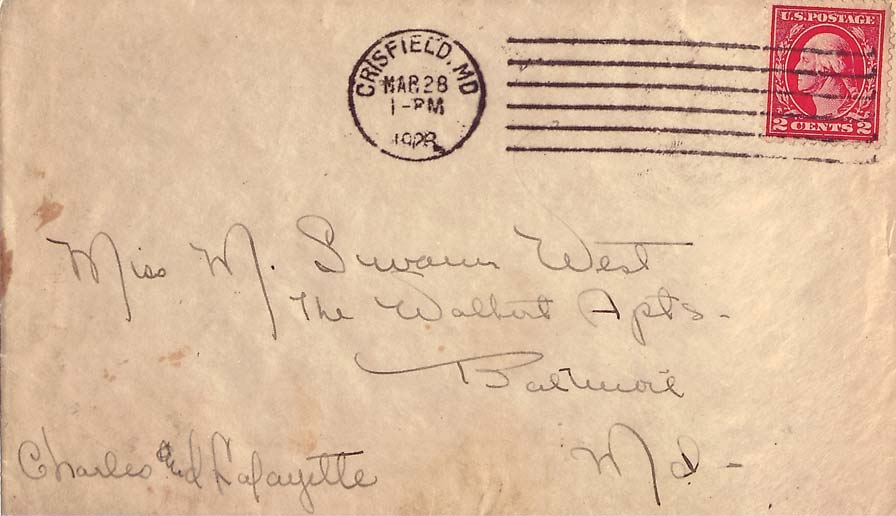 CRISFIELD, MD
MAR 28
1-PM
1928
U.S. POSTAGE
2 CENTS 2
Miss M. Swann West
The Walbert Apts-
Baltimore
Md-
Charles and Lafayette